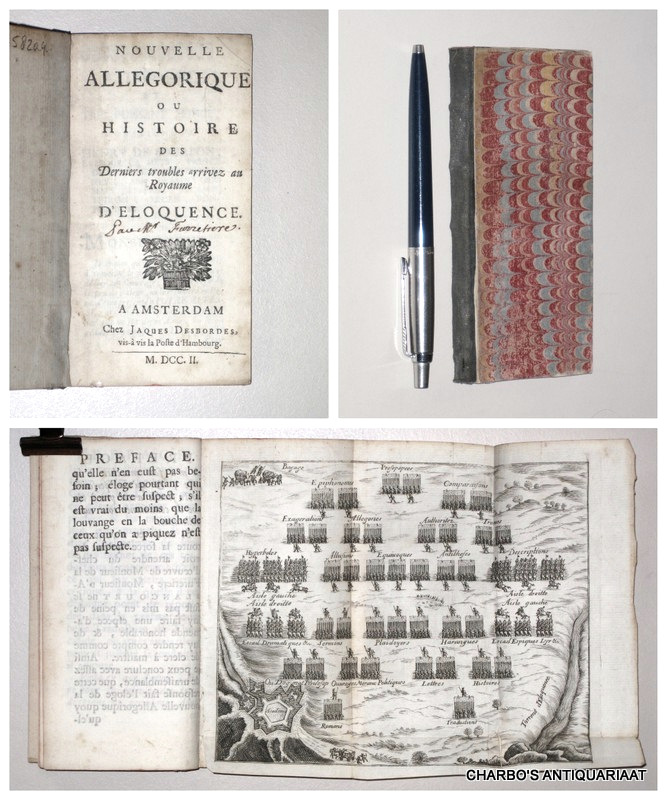 NOUVELLE
ALLEGORIQUE
OU
HISTOIRE
DES
Derniers troubles arrivez au
Royaume
D'ELOQUENCE.
Furetiere.
A AMSTERDAM
Chez JAQUES DESBORDES,
vis-à vis la Poste d'Hambourg.
M. DCC. II.
PREFACE.
qu'elle n'en eust pas be-
soin; éloge pourtant qui
ne peut être suspect, s'il
est vrai du moins que la
louvange en la bouche de
ceux qu'on a piquez n'est
pas suspecte.
Bagage
Prosopopées
Epiphonemes
Comparaisons
Exagerations
Allegories
Authoritez
Hyperboles
Allusions
Equivoques
Antitheses
Descriptions
Aisle gauche
Aisle droitte
Aisle droitte
Aisle gauche
Sermons
Plaidoyers
Harangues
Lettres
Histoires
Romans
Traductions
CHARBO'S ANTIQUARIAAT